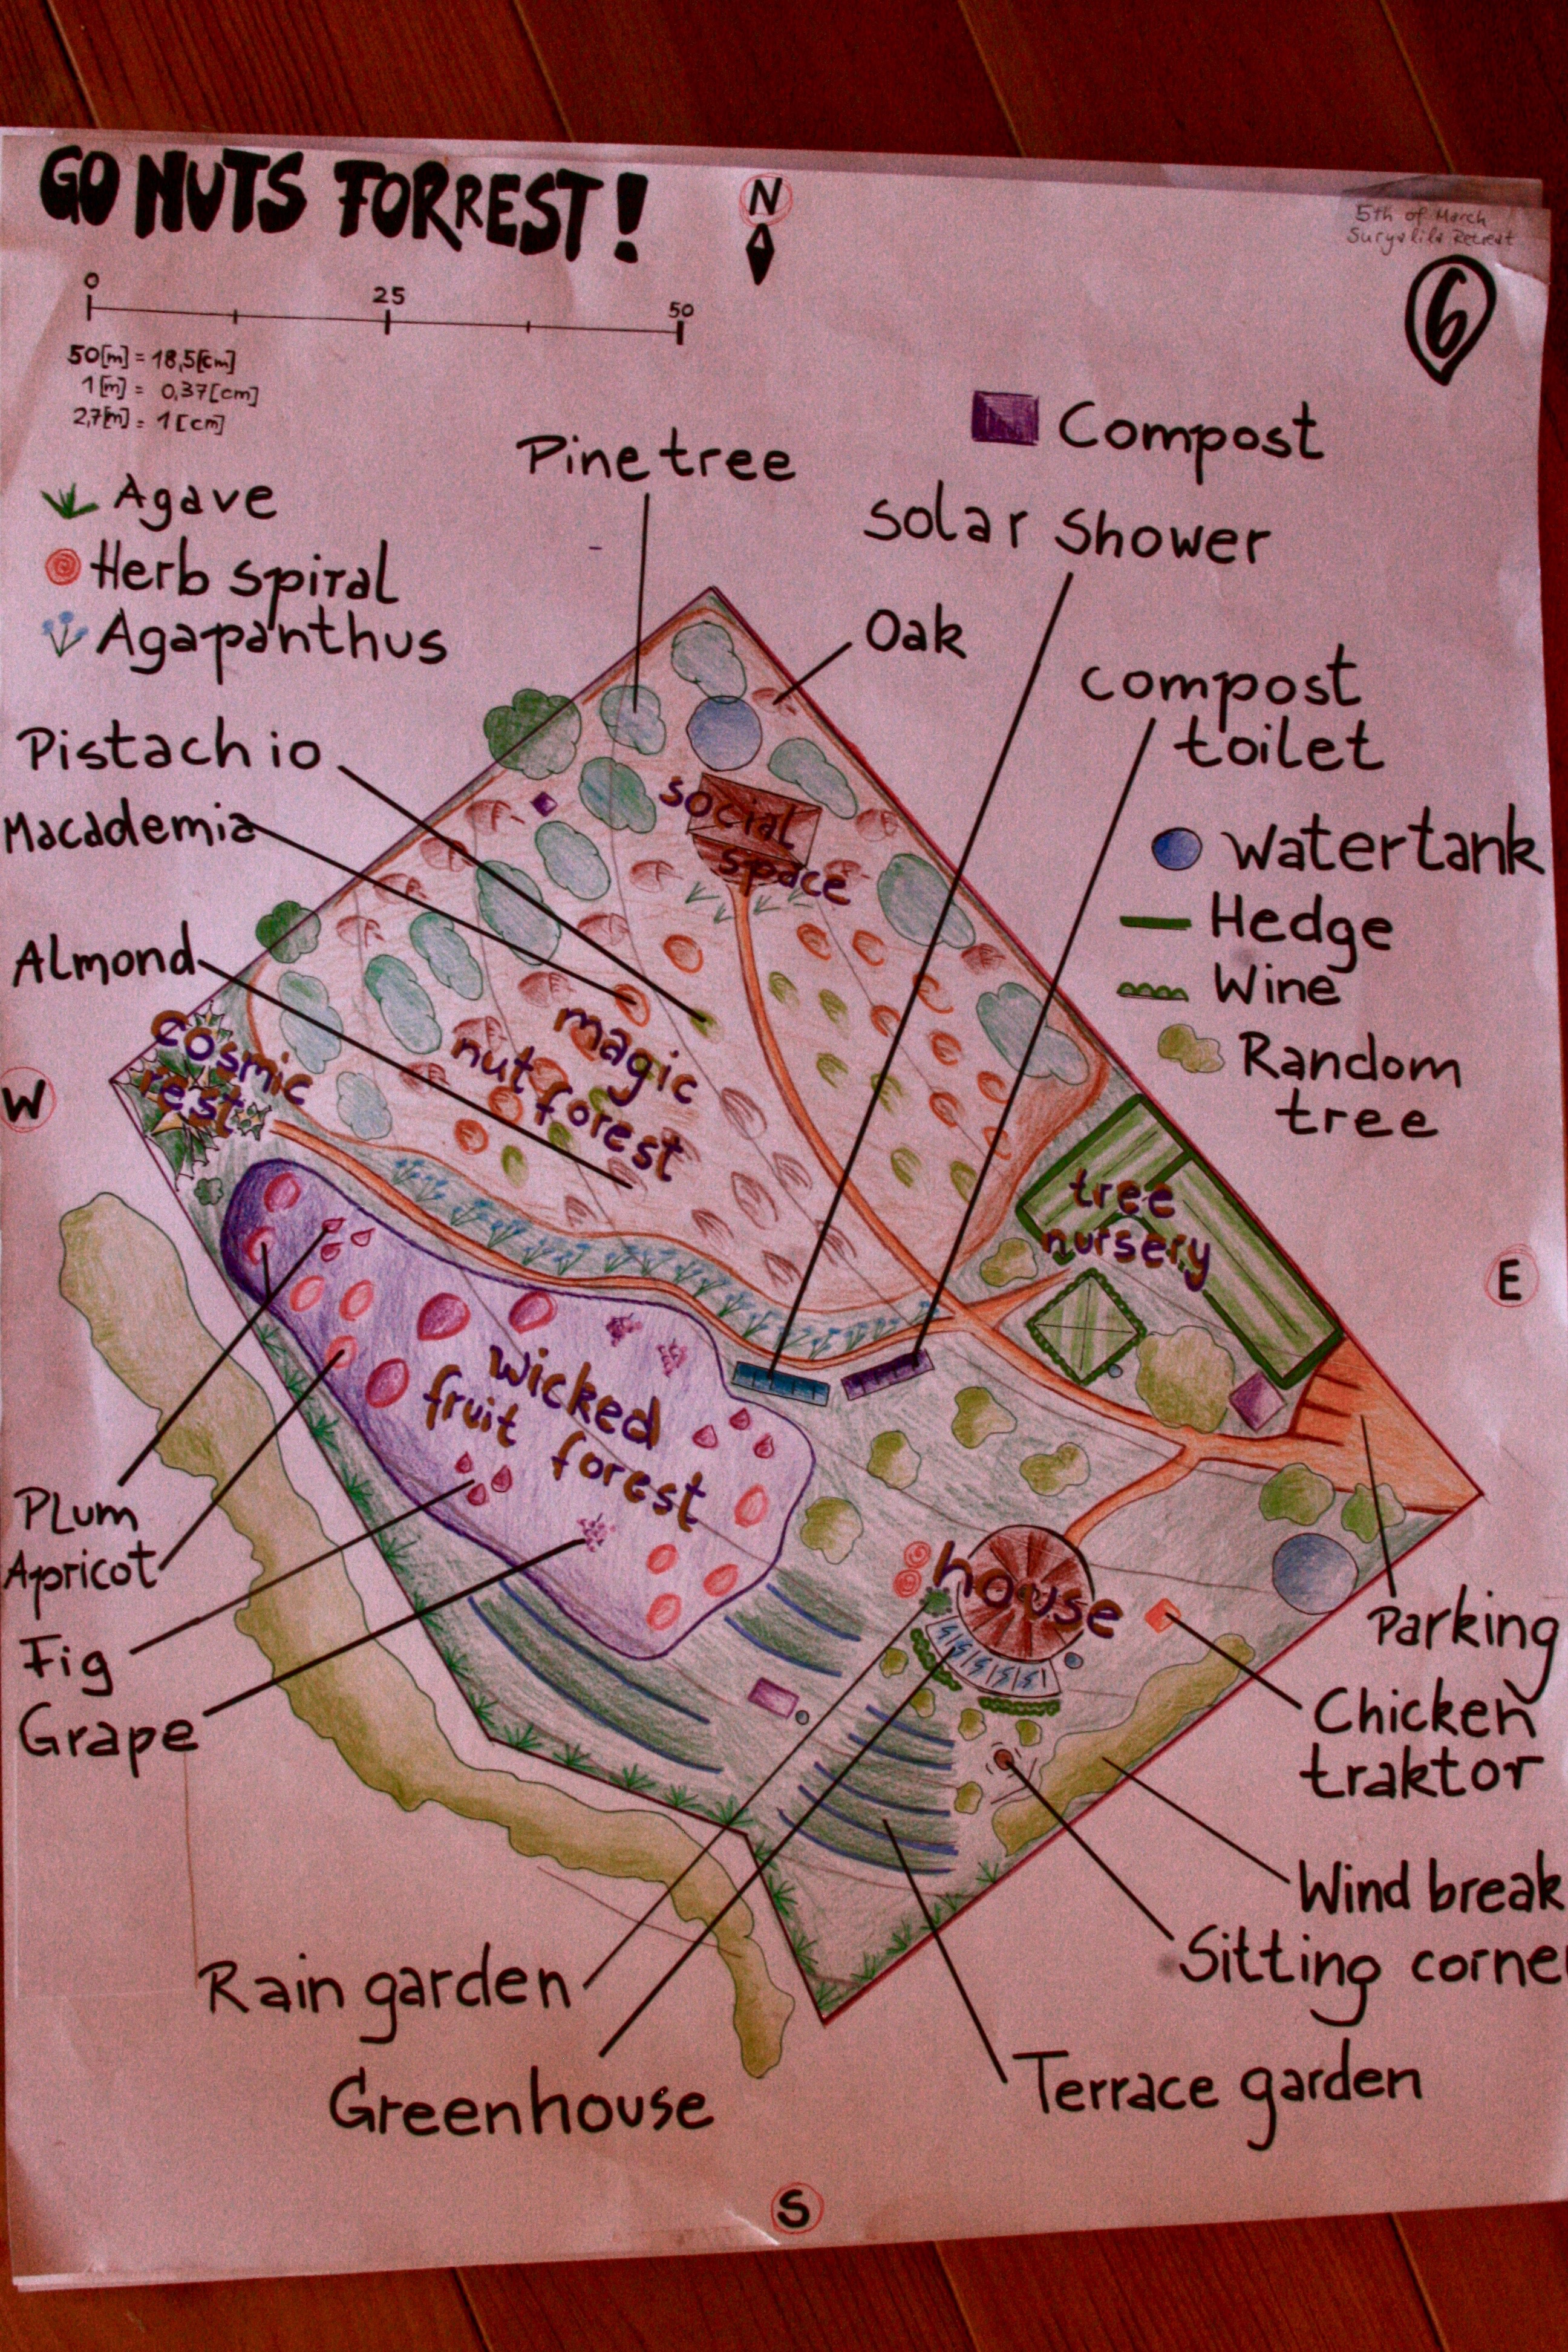 GO NUTS FORREST!
N
5th of March
Suryalila Retreat
6
0 25 50
50[m] = 18,5[cm]
1[m] = 0,37[cm]
2,7[m] = 1[cm]
Compost
Pine tree
Solar Shower
Agave
Herb spiral
Agapanthus
Oak
Compost
toilet
Pistachio
Macademia
Almond
Watertank
Hedge
Wine
Random
tree
social
space
magic
nut forest
cosmic
rest
W
tree
nursery
E
wicked
fruit forest
house
Plum
Apricot
Fig
Grape
Parking
Chicken
traktor
Wind break
Sitting corne
Rain garden
Greenhouse
Terrace garden
S